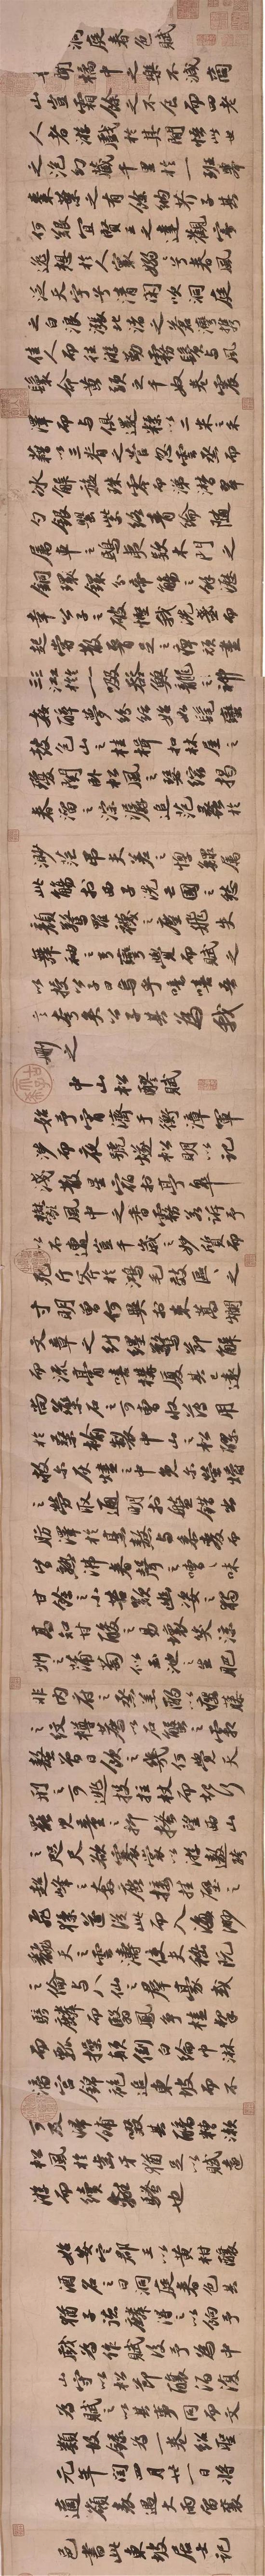 洞庭春色賦
吾聞橘中之樂不減商
山豈霜餘之不食而四老
人者游戲於其間悟此世
之泡幻藏千里於一班舉
棗葉之有餘納芥子其
何艱宜賢王之達觀寄
逸想於人寰嫋嫋兮春風
泛天宇兮清閑吹洞庭
之白浪漲北渚之蒼灣攜
佳人而往游勤霧鬢與風
鬟命黃頭之千奴卷震
澤而與俱還糅以二米之禾
藉以三脊之菅忽雲蒸而
冰解旋珠零而涕潸翠
勺銀罌紫絡青綸隨
屬車之鴟夷款木門之
銅鐶分帝觴之餘瀝
幸公子之破慳我洗盞而
起嘗散腰足之痹頑盡
三江於一吸吞魚龍之神
姦醉夢紛紜始如髦蠻
鼓包山之桂楫扣林屋之
瓊關臥松風之瑟縮揭
春溜之淙潺追范蠡於
渺茫吊夫差之惸鰥屬
此觴於西子洗亡國之愁
顏驚羅襪之塵飛失
舞袖之弓彎覺而賦之
以授公子曰烏乎噫嘻吾
言夸矣公子其為我
刪之
中山松醪賦
始予宵濟于衡漳軍
涉而夜號燧松明以記
淺散星宿於亭皋
鬱風中之香霧若訴予
以不遭豈千歲之妙質而
死斤斧於鴻毛效區區之
寸明曾何異於束蒿爛
文章之糾纆驚節解
而流膏嗟構廈其已遠
尚藥石之可曹收薄用
於桑榆製中山之松醪
救爾灰燼之中免爾螢爝
之勞取通明於盤錯出
肪澤於烹熬與黍麥而
皆熟沸舂聲之嘈嘈味
甘餘之小苦歎幽姿之獨
高知甘酸之易壞笑涼
州之蒲萄似玉池之生肥
非內府之蒸羔酌以癭藤
之紋樽薦以石蟹之霜
螯曾日飲之幾何覺天
刑之可逃投拄杖而起行
罷兒童之抑搔望西山
之咫尺欲褰裳以游遨跨
超峰之奔鹿接挂壁之
飛猱遂從此而入海渺
翻天之雲濤使夫嵇阮
之倫與八仙之群豪或
騎麟而翳鳳爭榼挈
而瓢操顛倒白綸巾淋
漓宮錦袍追東坡而不
可及歸餔歠其醨糟漱
松風於齒牙猶足以賦遠
游而續離騷也
始安定郡王以黃柑釀
酒名之曰洞庭春色其
猶子德麟得之以餉予
戲為作賦後予為中
山守以松節釀酒復
為賦之以其事同而文
類故錄為一卷紹聖
元年閏四月廿一日將
適嶺表遇大雨留襄
邑書此東坡居士記